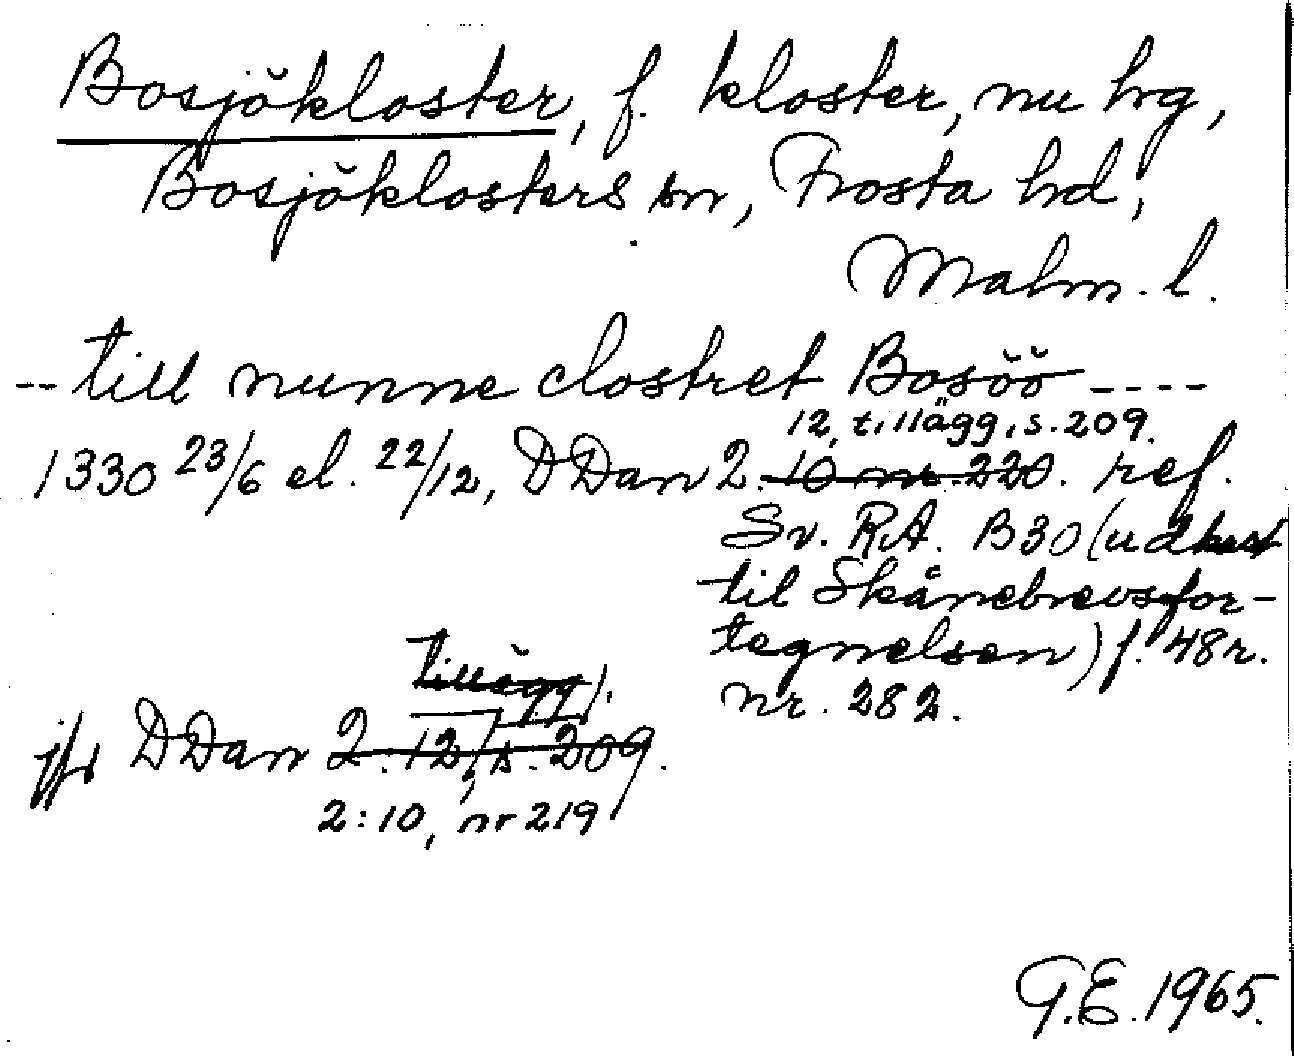 Bosjökloster, f. kloster, nu hrg,
Bosjöklosters sn, Frosta hd,
Malm. l.
-- till nunne clostret Bosöö ----
12, tillägg, s. 209.
1330 23/6 el. 22/12, DDan 2. 10 nr. 220. ref.
Sv. RA. B30 (udkast
til Skånebrevsfor-
tegnelsen) f. 48r.
nr. 282.
tillägg
jfr DDan 2:12, s. 209.
2:10, nr 219
G.E. 1965.